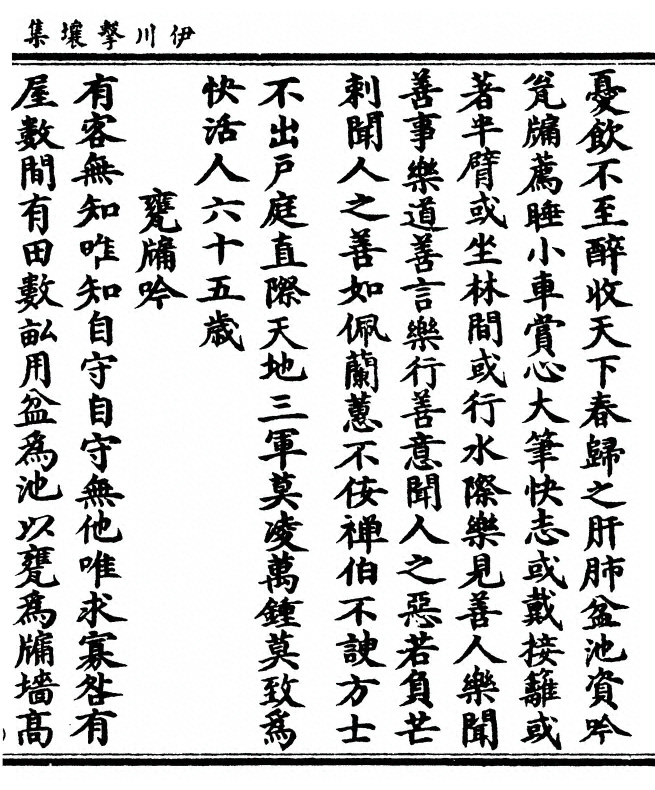 伊川擊壤集
憂飲不至醉收天下春歸之肝肺盆池資吟
瓮牖薦睡小車賞心大筆快志或戴接䍦或
著半臂或坐林間或行水際樂見善人樂聞
善事樂道善言樂行善意聞人之惡若負芒
刺聞人之善如佩蘭蕙不佞禅伯不諛方士
不出戸庭直際天地三軍莫凌萬鍾莫致為
快活人六十五歲
甕牖吟
有客無知唯知自守自守無他唯求寡咎有
屋數間有田數畝用盆為池以甕為牖墻高